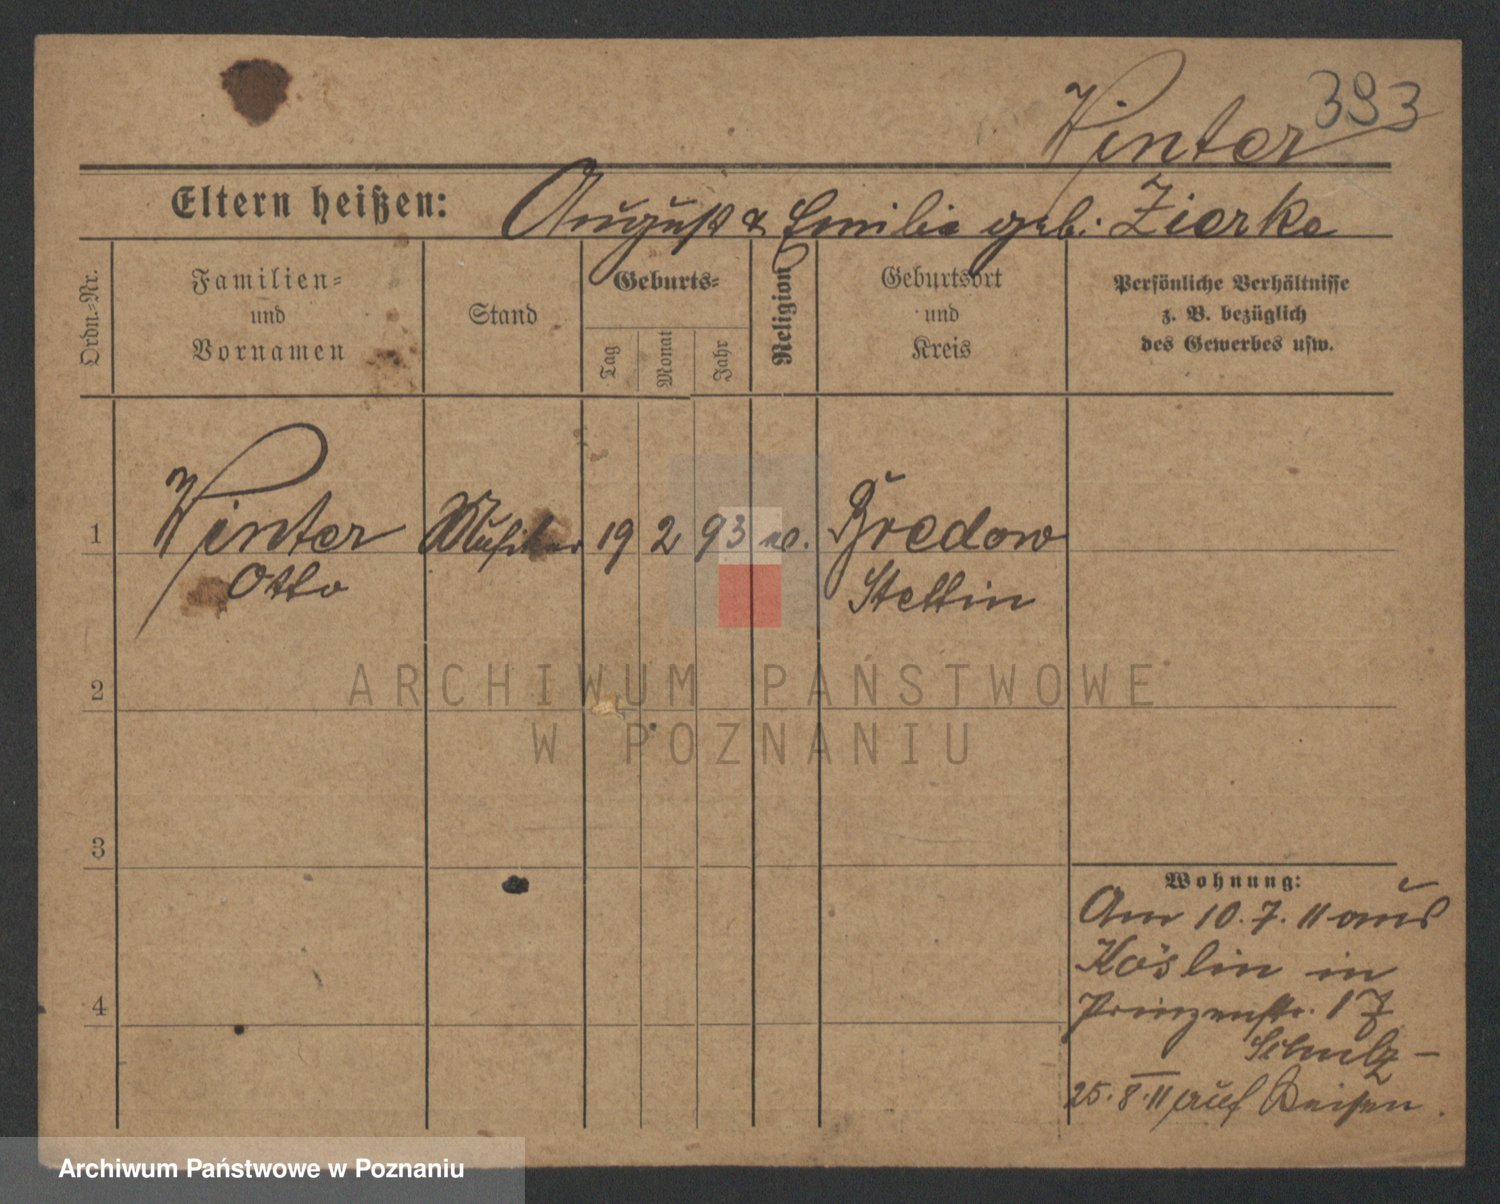 Winter 393
Eltern heißen: August & Emilie geb. Zierke
Ordn.-Nr.
Familien-
und
Vornamen
Stand
Geburts-
Tag
Monat
Jahr
Religion
Geburtsort
und
Kreis
Persönliche Verhältnisse
z. B. bezüglich
des Gewerbes usw.
1 Winter Musiker 19 2 93 ev. Bredow
Otto Stettin
2
3
4
Wohnung:
Am 10.7.11 aus
Köslin in
Prinzenstr. 17
Schulz -
25.8.11 auf Reisen.
ARCHIWUM PAŃSTWOWE
W POZNANIU
Archiwum Państwowe w Poznaniu